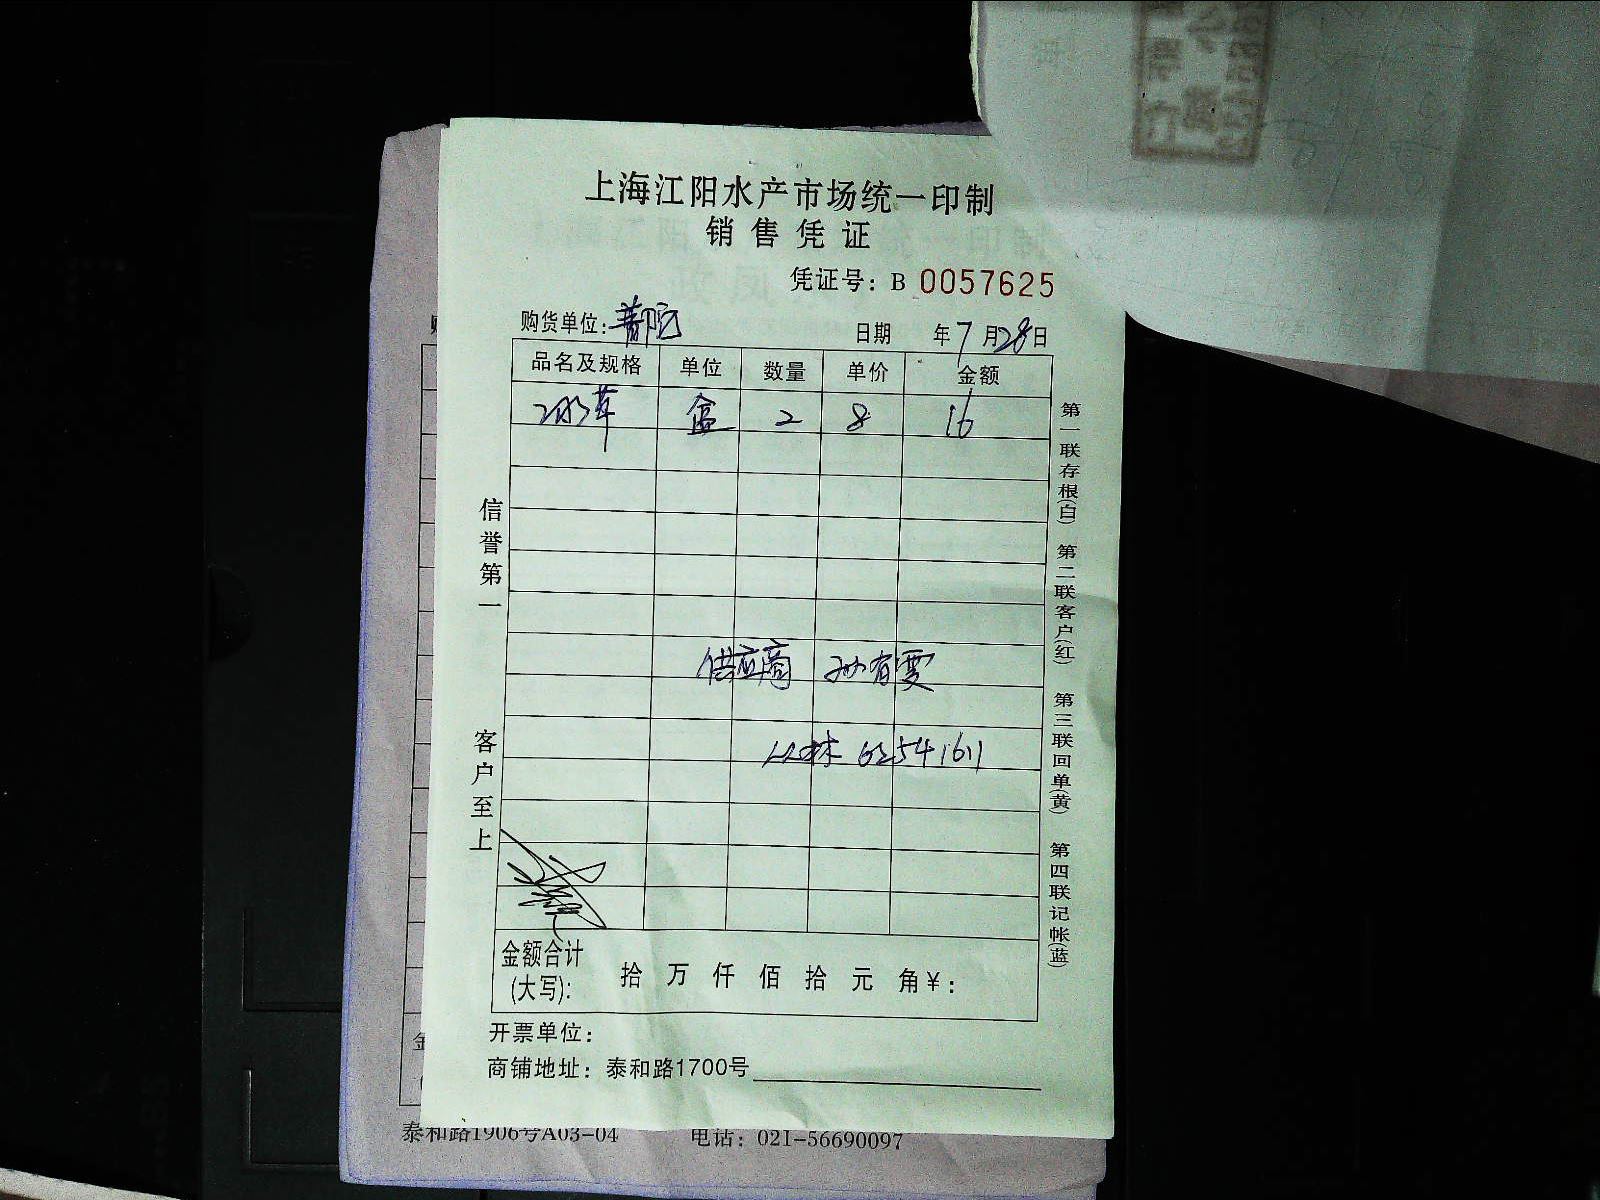 上海江阳水产市场统一印制
销售凭证
凭证号：B 0057625
购货单位：普陀
日期 年7月28日
品名及规格 单位 数量 单价 金额
盒 2 8 16
供应商
62541611
金额合计
(大写)：
拾 万 仟 佰 拾 元 角¥：
开票单位：
商铺地址：泰和路1700号
信誉第一
客户至上
第一联存根(白) 第二联客户(红) 第三联回单(黄) 第四联记帐(蓝)
泰和路1906号A03-04 电话：021-56690097